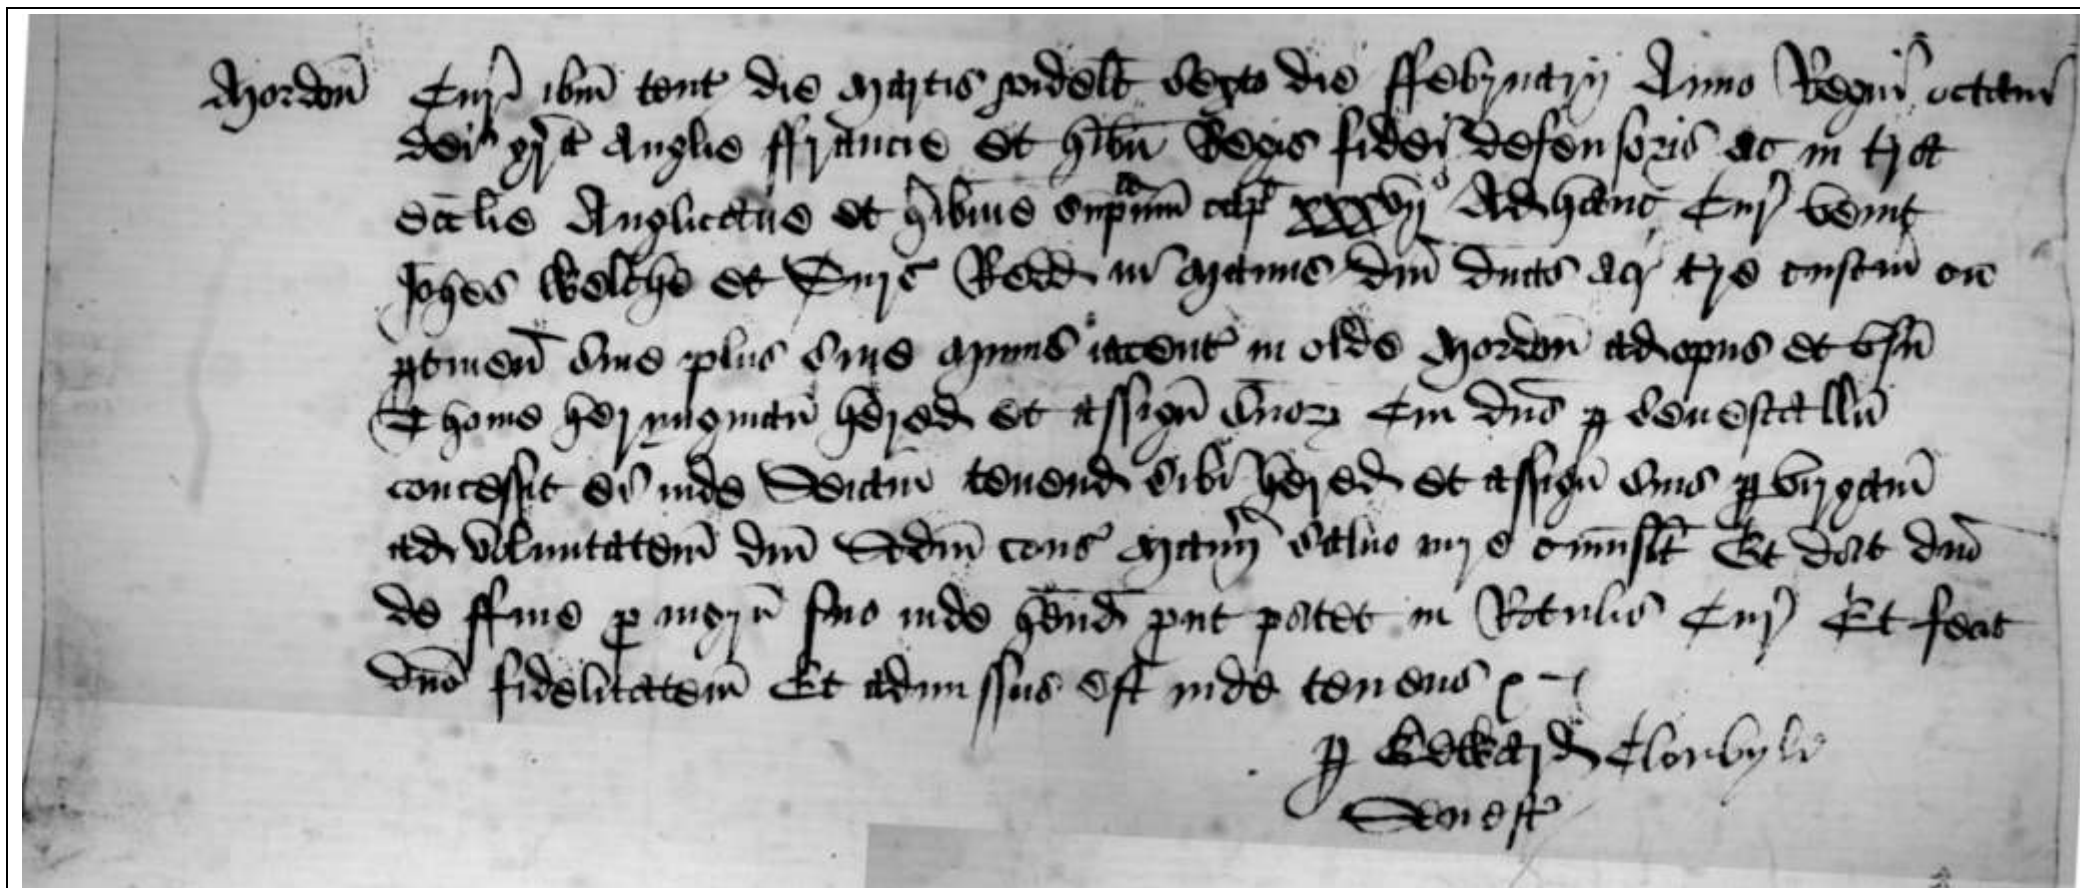 Mordon Cur ibm tent die Martis videlt sexto die ffebruarij Anno Regni octaui
dei gra Anglie ffrancie et hibn Regis fidei defensoris ac in tra
ecclie Anglicane et hibnie supmm cap xxxvij Ad hanc Cur venit
Johes Welche et Redd in manus dni duas acr tre custum cu
ptinen siue plus siue minus iacent in olde Mordon ad opus et vsu
Thome heryngman hered et assign suor Cui dns p senescallu
concessit ei inde Seicam tenend sibi hered et assign suis p virgam
ad voluntatem dni Scdm cons Manij saluo iure cuiuslt Et dat dno
de ffine p ingru suo inde hend put patet in Rotulis Cur Et fecit
dno fidelitatem Et admissus est inde tenens
p Edward
Senest